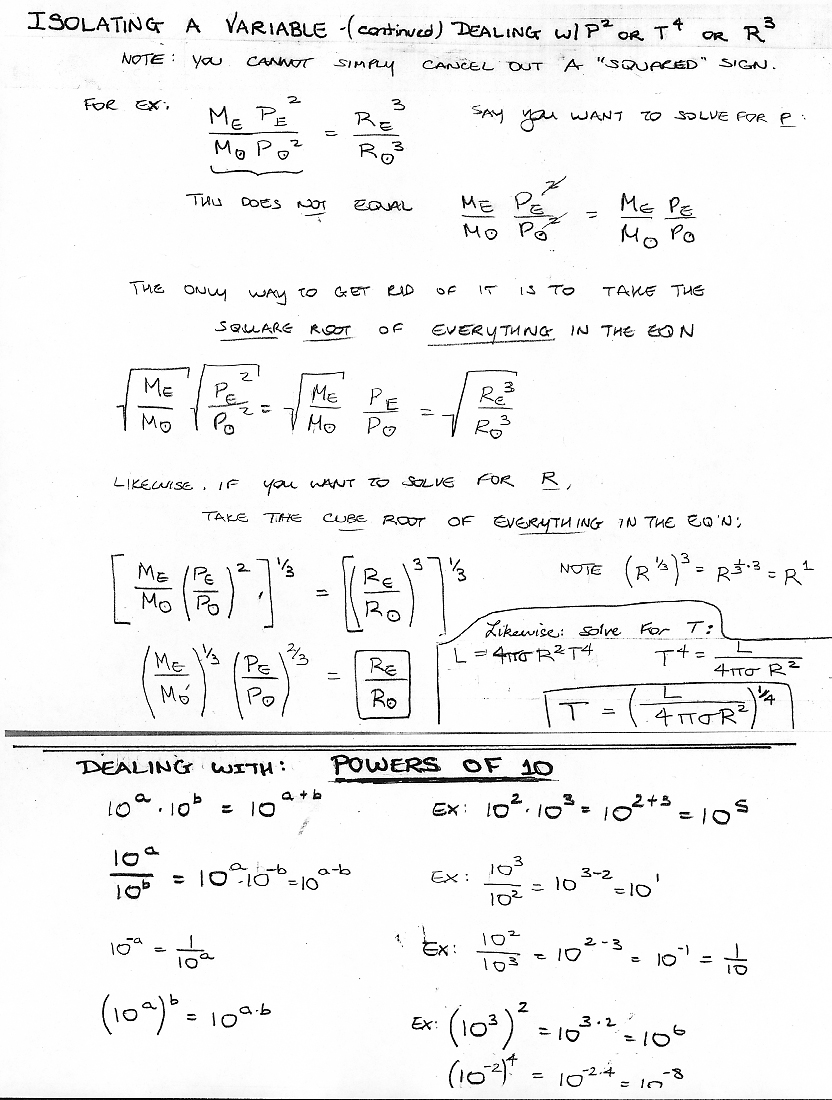 ISOLATING A VARIABLE -(continued) DEALING W/ P² OR T⁴ OR R³
NOTE: YOU CANNOT SIMPLY CANCEL OUT A "SQUARED" SIGN.
FOR EX: (M_E P_E²)/(M_⊙ P_⊙²) = R_E³/R_⊙³ SAY YOU WANT TO SOLVE FOR P:
THIS DOES NOT EQUAL M_E/M_⊙ P_E²/P_⊙² = M_E/M_⊙ P_E/P_⊙
THE ONLY WAY TO GET RID OF IT IS TO TAKE THE
SQUARE ROOT OF EVERYTHING IN THE EQN
√(M_E/M_⊙) √(P_E²/P_⊙²) = √(M_E/M_⊙) P_E/P_⊙ = √(R_E³/R_⊙³)
LIKEWISE, IF YOU WANT TO SOLVE FOR R,
TAKE THE CUBE ROOT OF EVERYTHING IN THE EQ'N:
[M_E/M_⊙ (P_E/P_⊙)²]^1/3 = [(R_E/R_⊙)³]^1/3 NOTE (R^1/3)³ = R^(1/3·3) = R¹
(M_E/M_⊙)^1/3 (P_E/P_⊙)^2/3 = R_E/R_⊙
Likewise: solve For T:
L = 4πσ R²T⁴ T⁴ = L/(4πσ R²)
T = (L/(4πσR²))^1/4
DEALING WITH: POWERS OF 10
10^a · 10^b = 10^(a+b) EX: 10² · 10³ = 10^(2+3) = 10⁵
10^a/10^b = 10^a · 10^-b = 10^(a-b) EX: 10³/10² = 10^(3-2) = 10¹
10^-a = 1/10^a EX: 10²/10³ = 10^(2-3) = 10^-1 = 1/10
(10^a)^b = 10^(a·b) EX: (10³)² = 10^(3·2) = 10⁶
(10^-2)⁴ = 10^(-2·4) = 10^-8